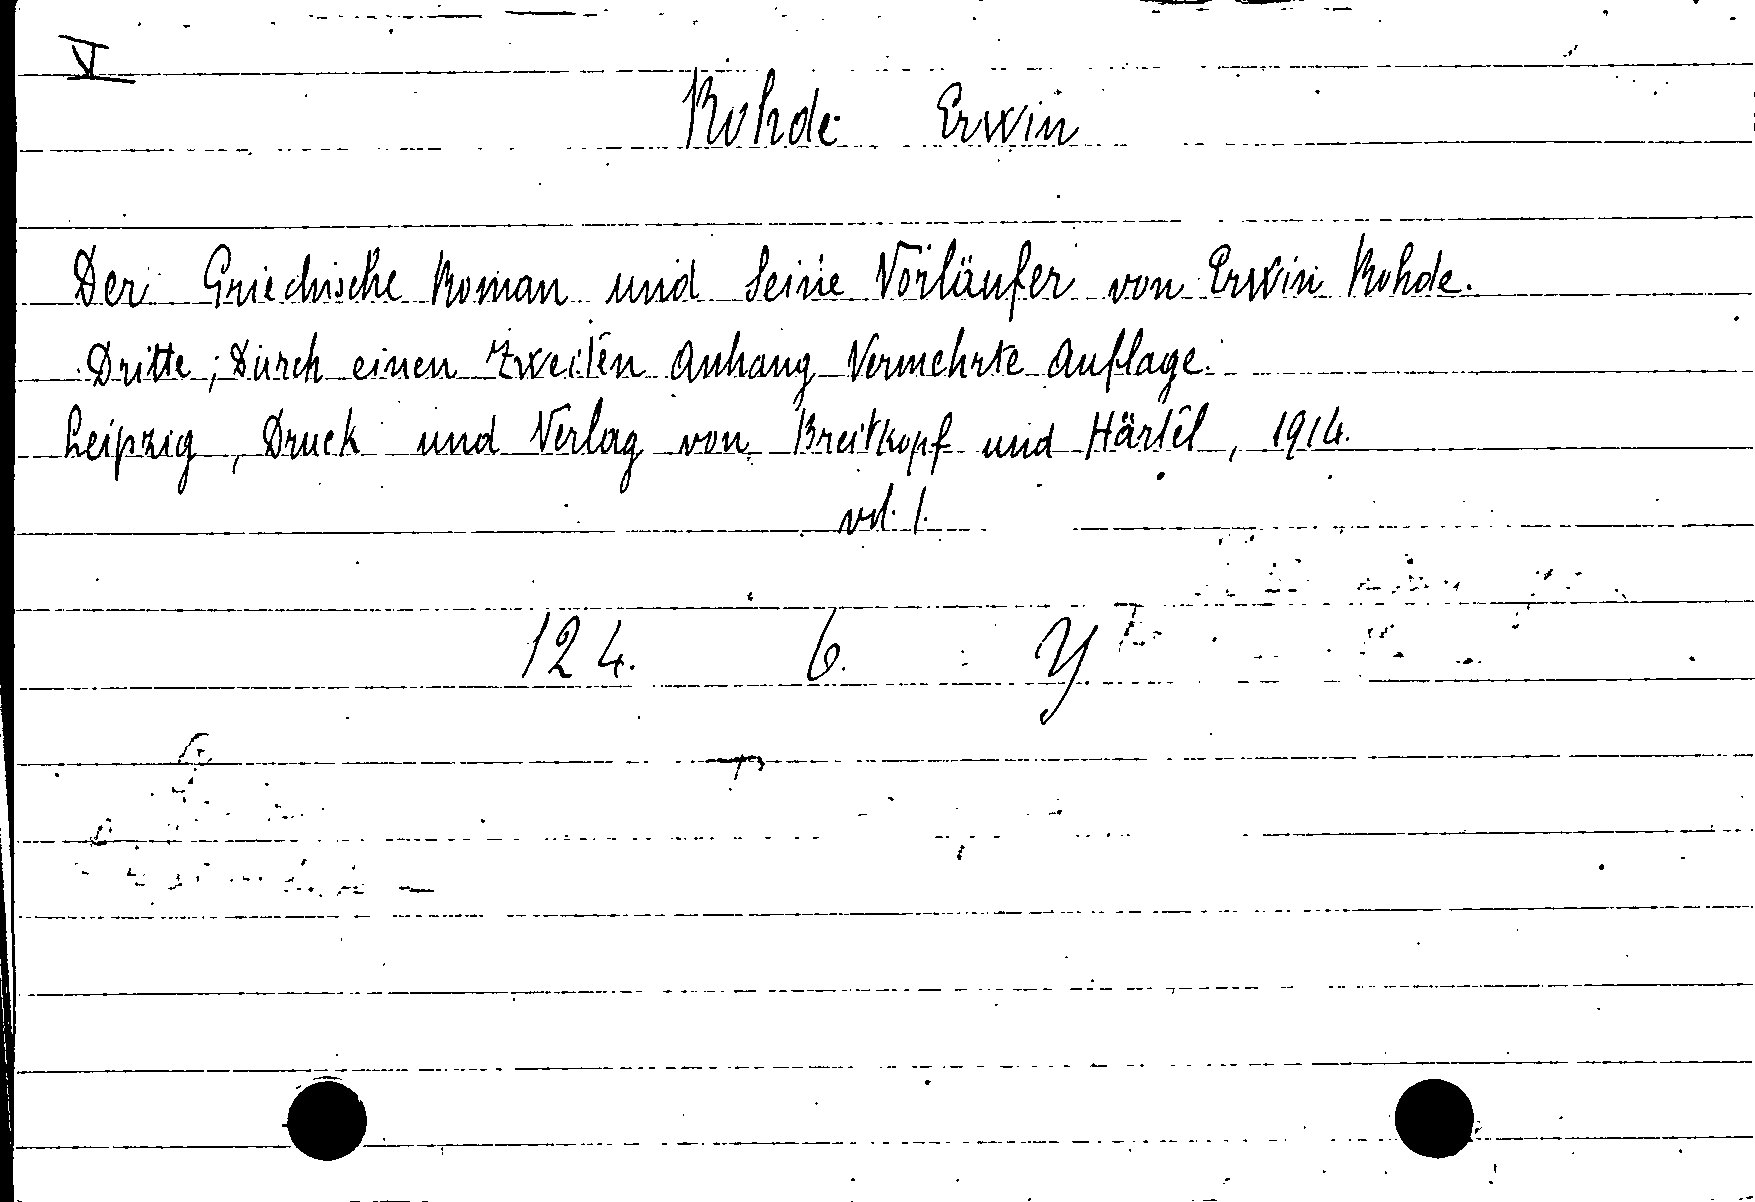 VI
Rohde Erwin
Der Griechische Roman und seine Vorläufer von Erwin Rohde.
Dritte, durch einen zweiten Anhang vermehrte Auflage.
Leipzig, Druck und Verlag von Breitkopf und Härtel, 1914.
vol. 1.
124. 6. Y